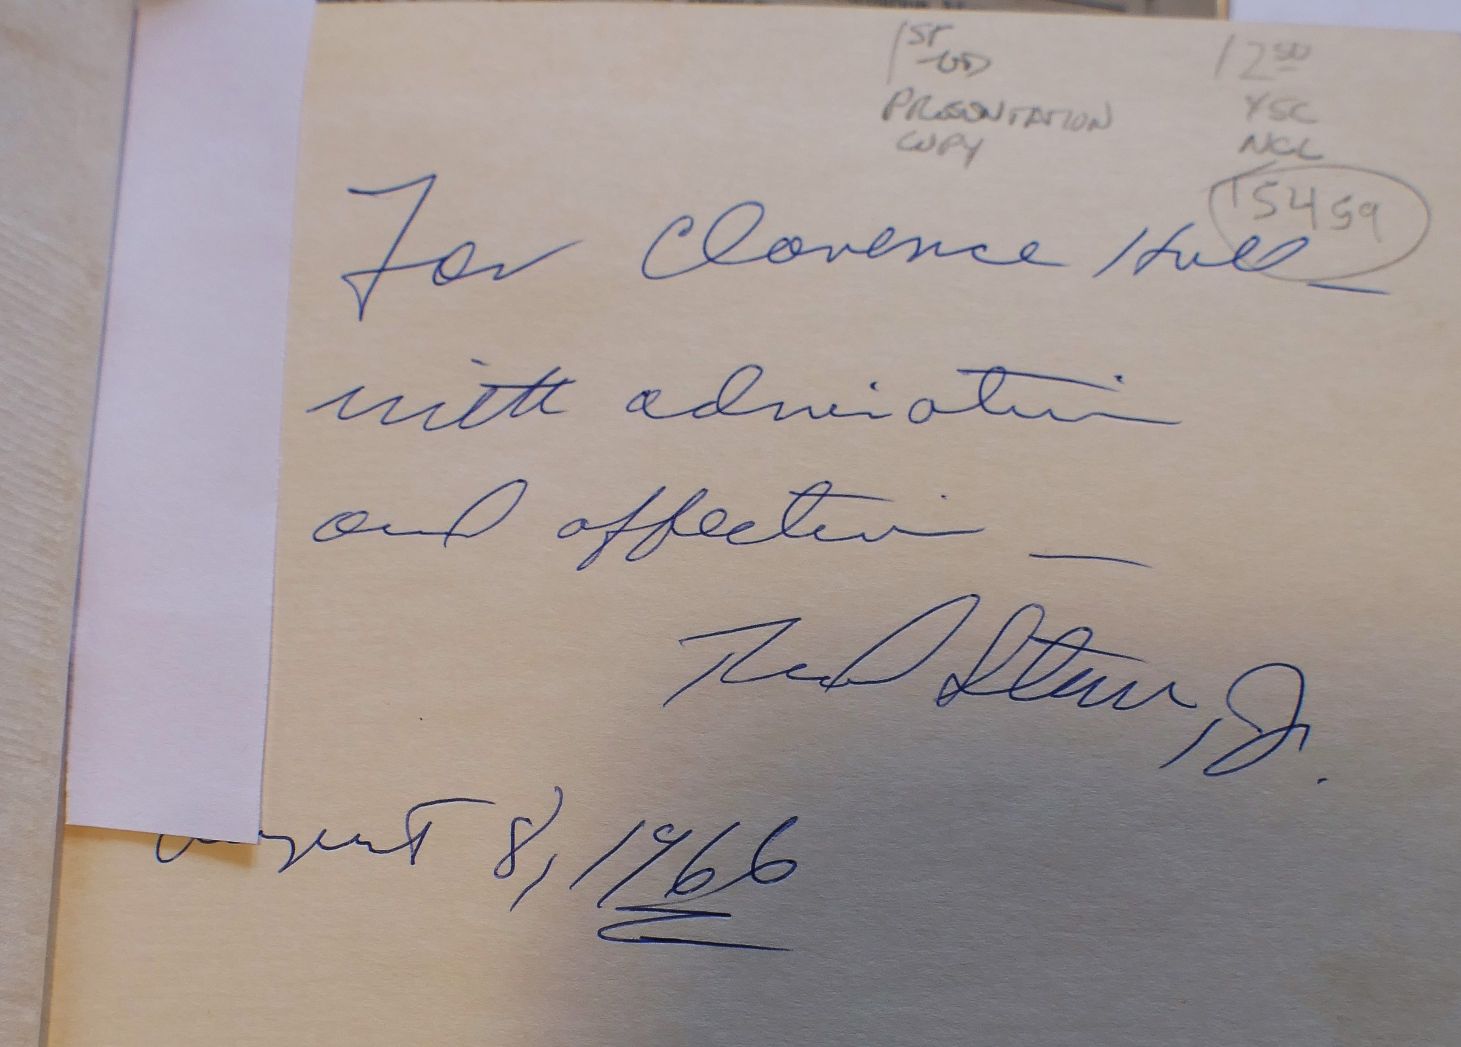 1ST ED
PRESENTATION
COPY
12 50
YSC
NCL
15459
For Clarence Hull
with admiration
and affection —
Ned Starr, Jr.
August 8, 1966